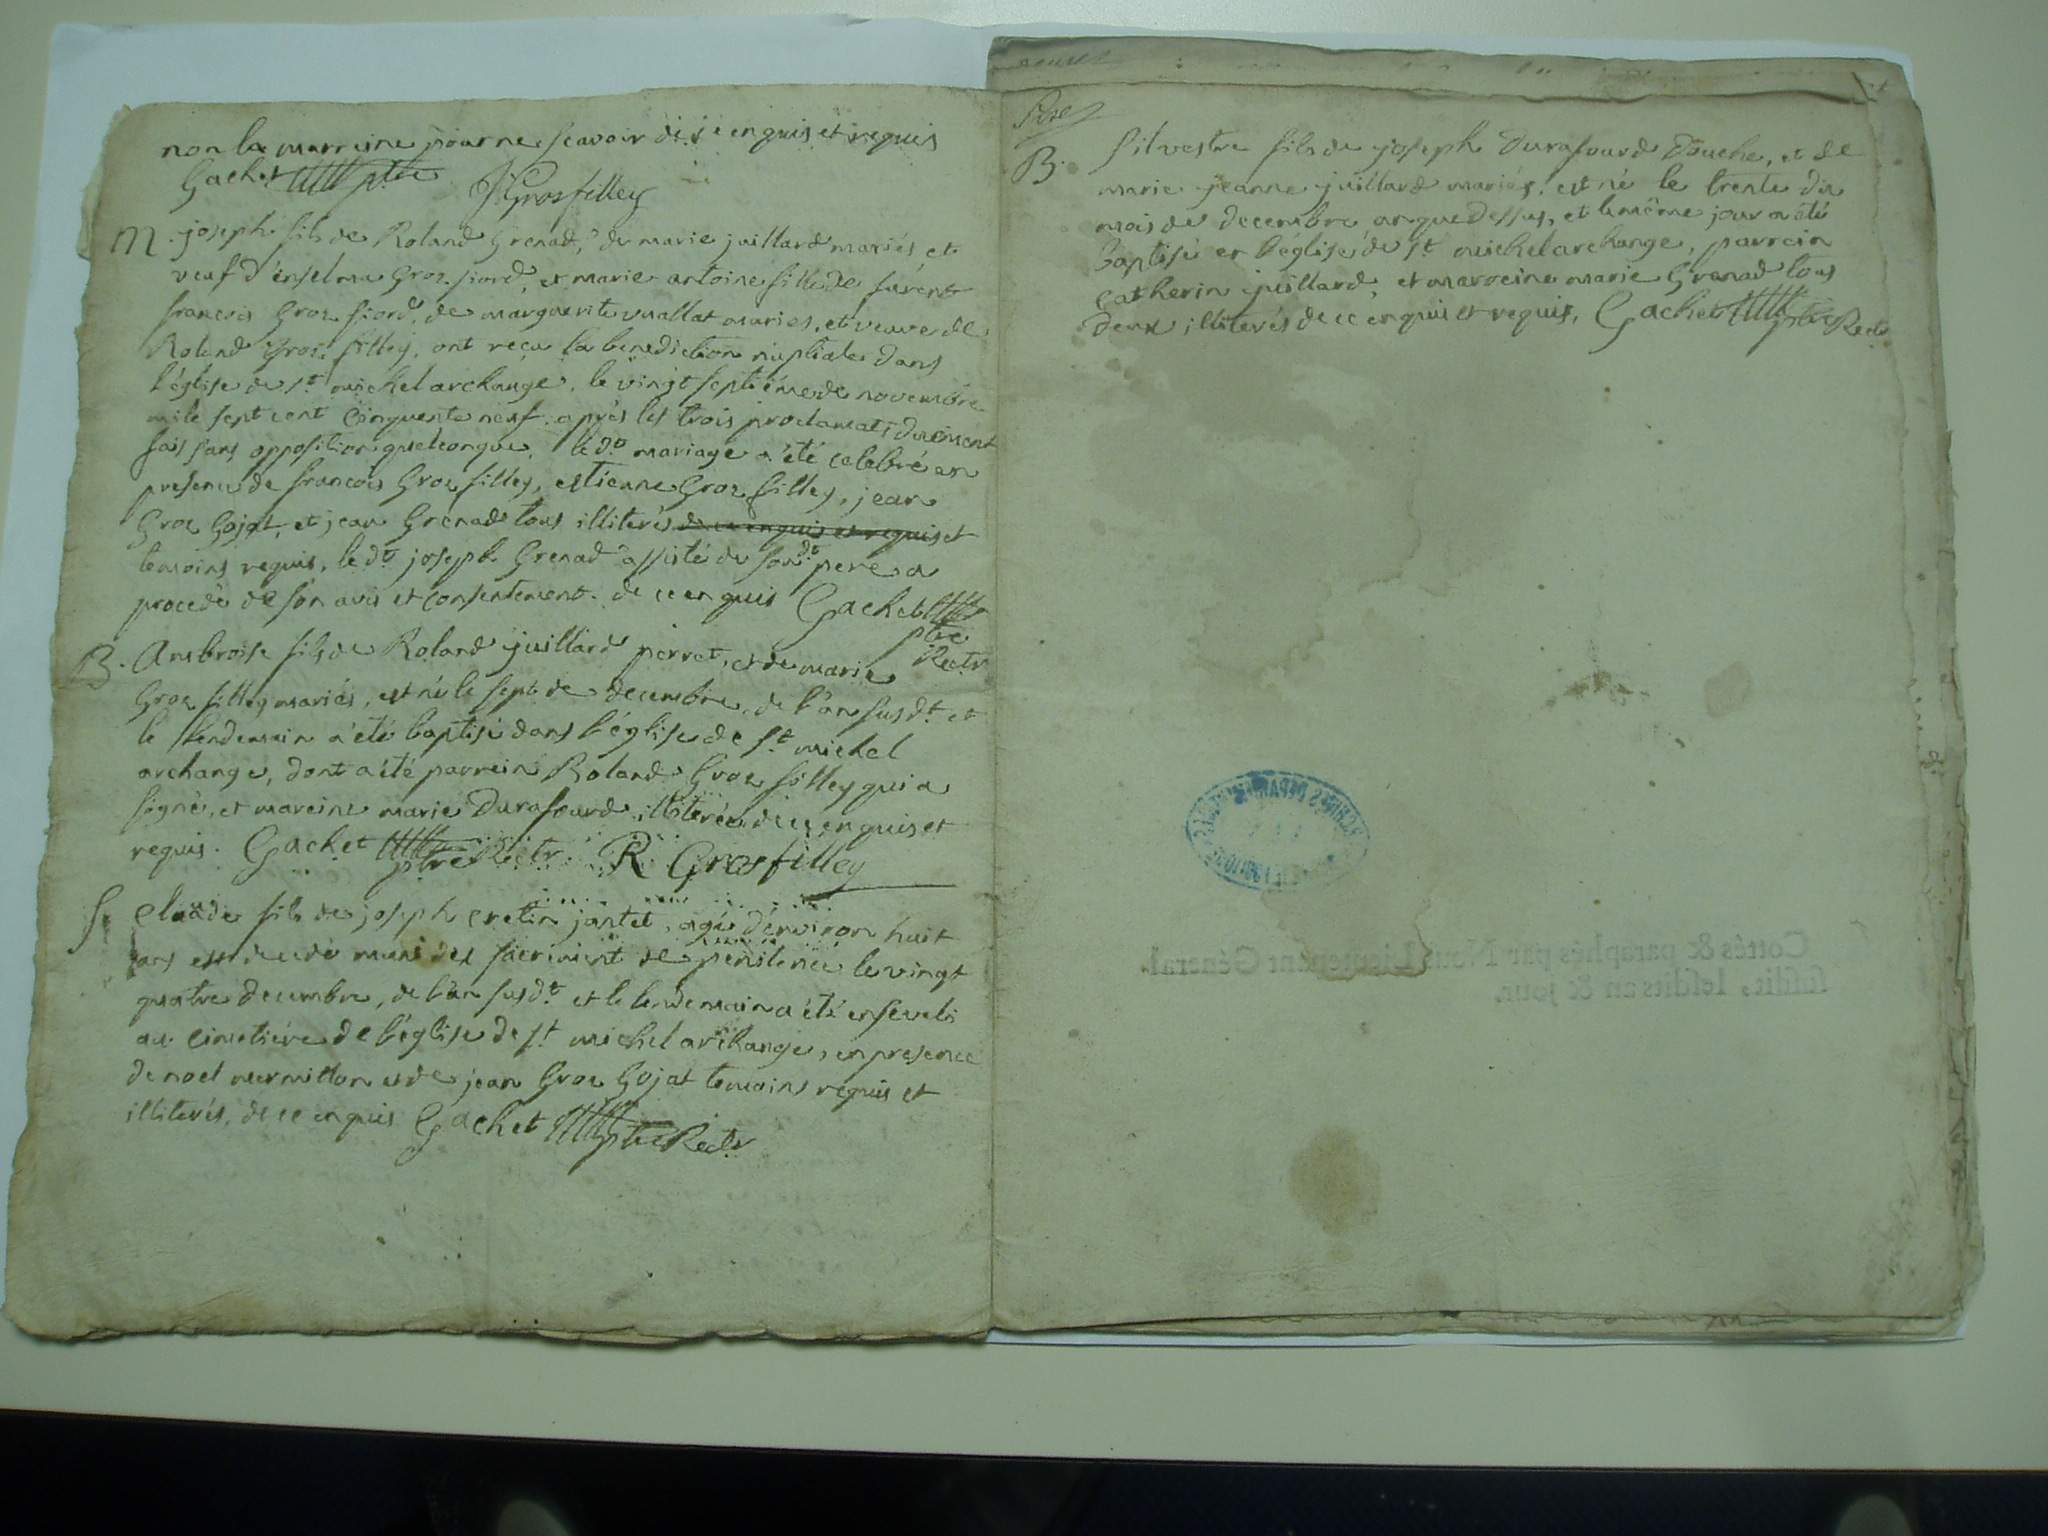 non la marreine pour ne scavoir de ce enquis et requis
Gachet ptre J Grosfilley
M. joseph fils de Roland Grenad, de marie juillard mariés et
veuf d'enselma Groz fiord, et marie antoine fille de furent
francois Groz fiord, de marguerite vuallat maries, et veuve de
Roland Groz filley, ont reçu la benediction nuptiale dans
l'église de st michel archange, le vingt septiéme de novembre
mile sept cent cinquente neuf. aprés les trois proclamats duëment
fais sans opposition quelconque, le dt mariage a été celebré en
presence de francois Groz filley, estienne Groz filley, jean
Groz Gojat, et jean Grenad tous illiterés de ce enquis et requis et
temoins requis, le dt joseph Grenad assisté de son dt pere a
procedé de son avis et consentement. de ce enquis Gachet
ptre
Rectr
B. Ambroise fils de Roland juillard perret, et de marie
Groz filley mariés, est né le sept de decembre, de l'an susdt et
le lendemain a été baptisé dans l'église de st michel
archange, dont a été parrein Roland Groz filley qui a
signé, et mareine marie Durafourd illiterée de ce enquis et
requis. Gachet ptre Rectr R Grosfilley
S. Claude fils de joseph cretin jantet, agé d'environ huit
ans est decedé muni des sacrement de penitence le vingt
quatre decembre, de l'an susdt et le lendemain a été enseveli
au cimetiére de l'église de st michel archange, en presence
de noel mermillon et de jean Groz Gojat temoins requis et
illiterés, de ce enquis Gachet ptre Rectr
B. Silvestre fils de joseph Durafourd Douche, et de
marie jeanne juillard mariés, est né le trente du
mois de decembre an que dessus, et le même jour a été
Baptisé en l'église de st michel archange, parrein
Catherin juillard, et marreine marie Grenad tous
deux illiterés de ce enquis et requis, Gachet ptre Rectr
Cottés & paraphés par Nous Lieutenant Général
susdit, lesdits an & jour.